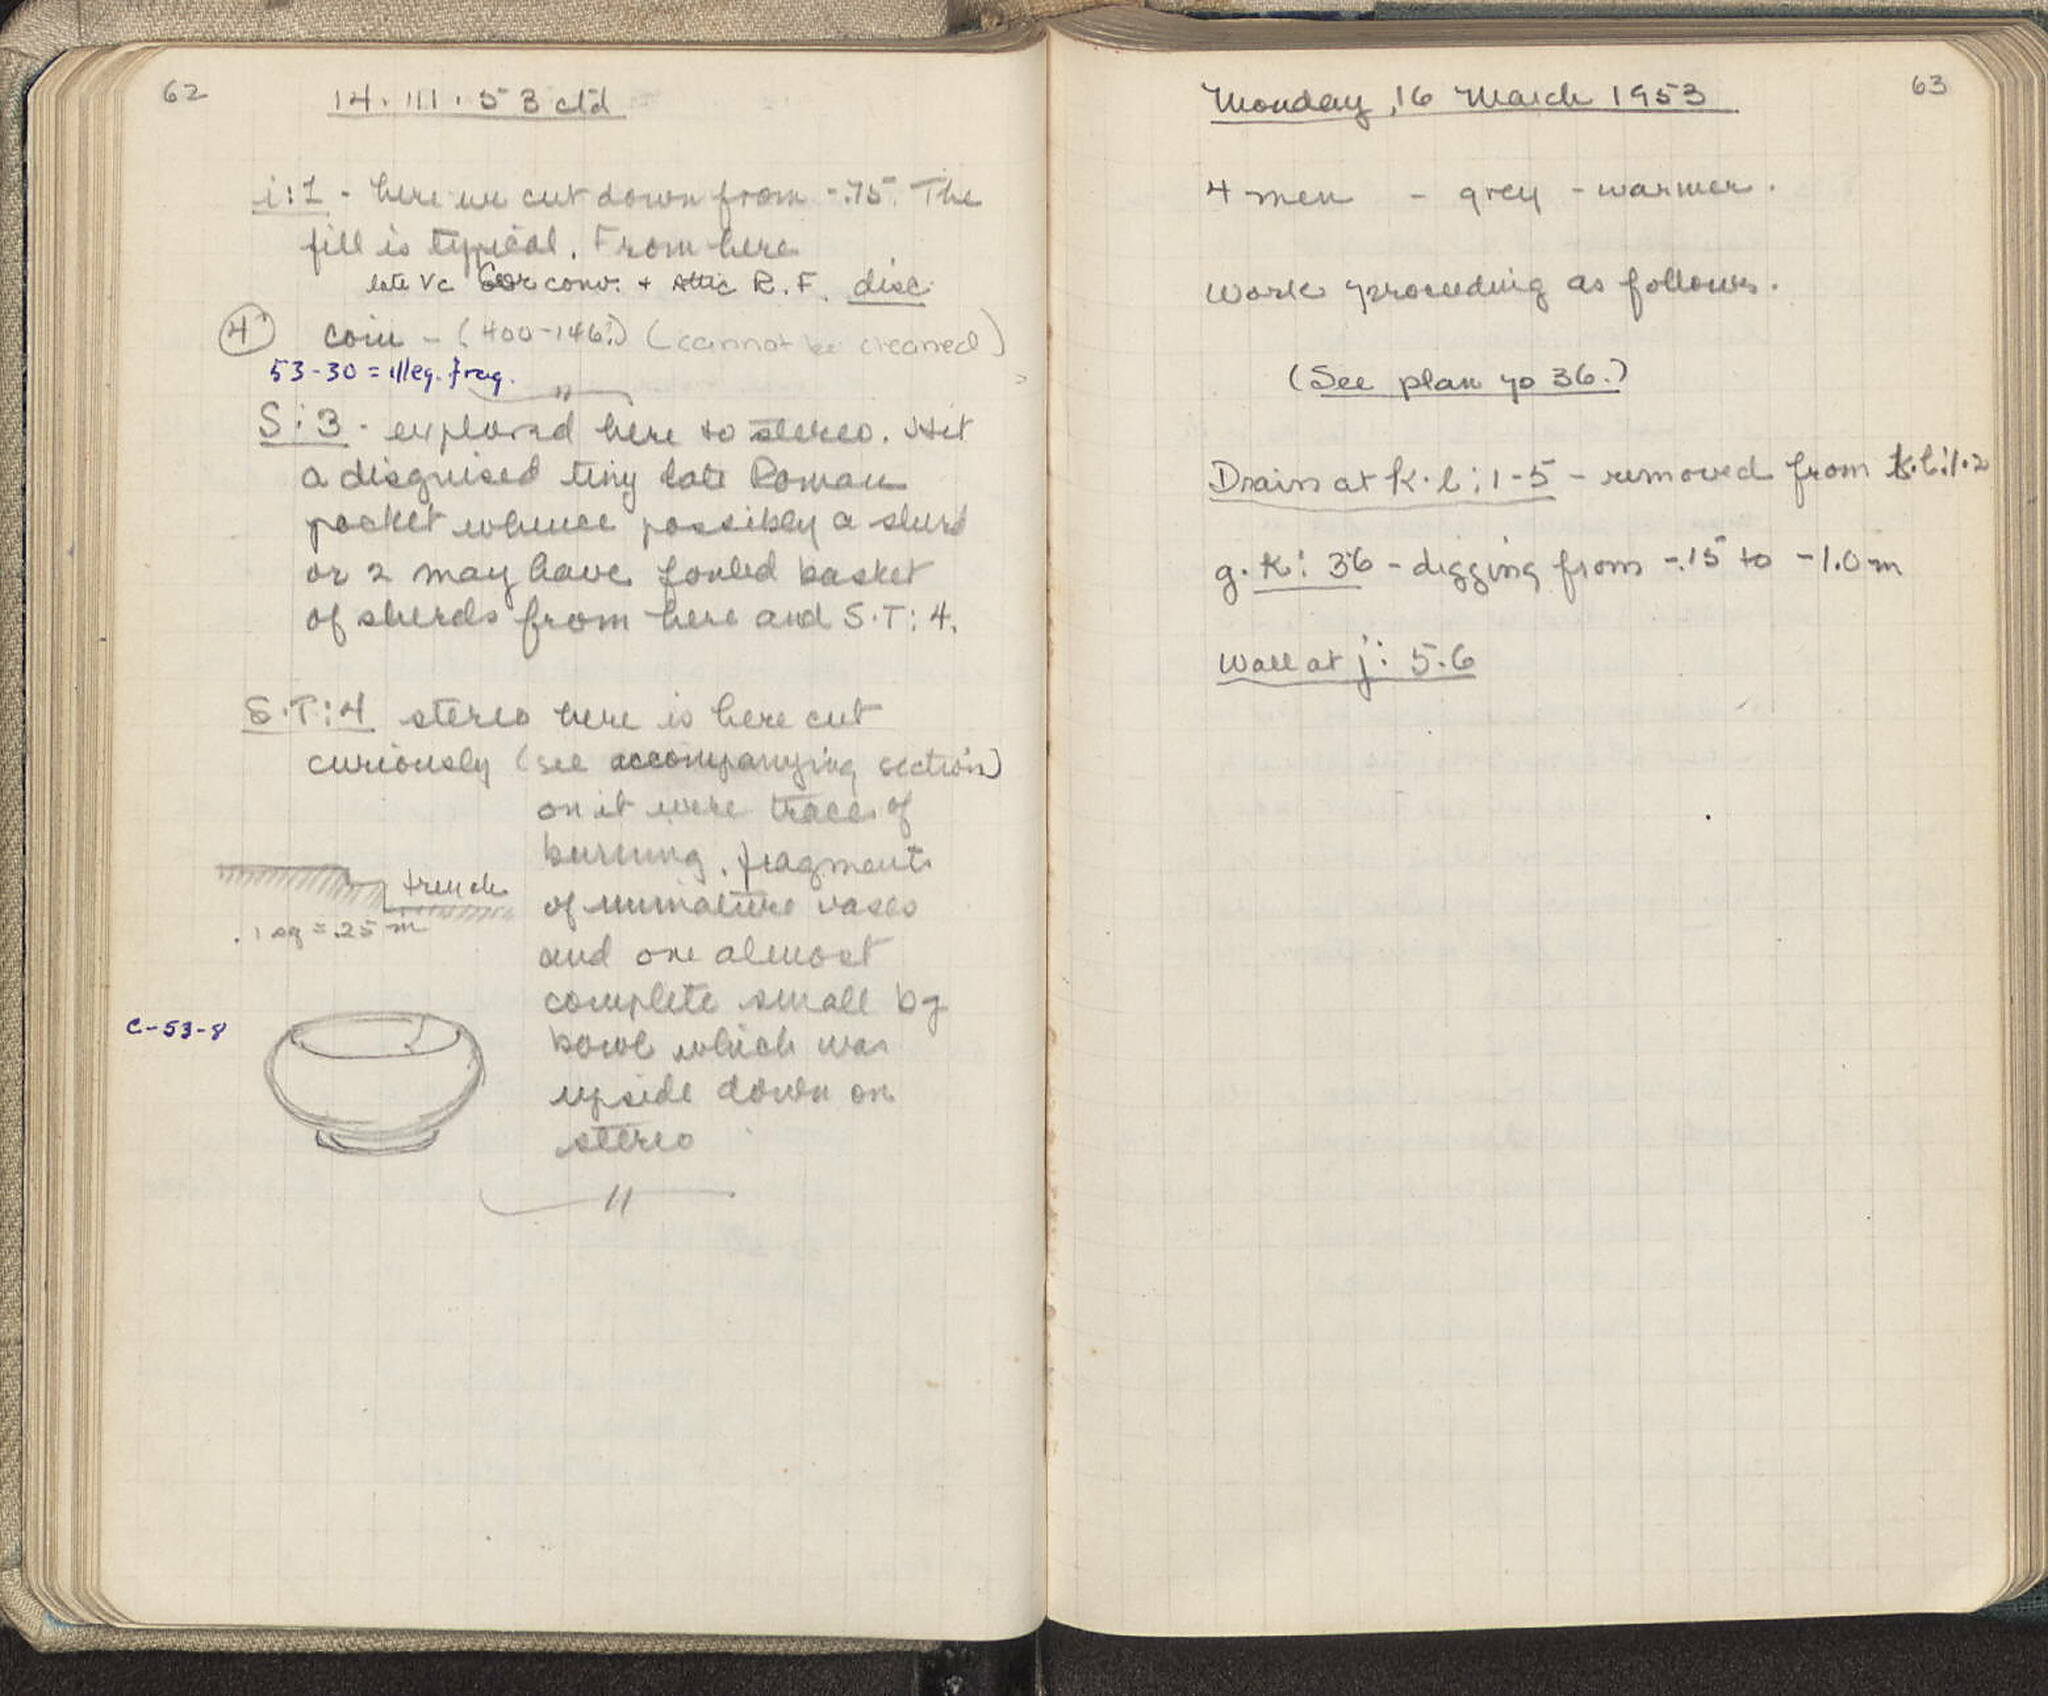 62
14.III.53 ctd
i:1 - here we cut down from -.75. The
fill is typical. From here
late Vc Cor conv. + Attic R.F. disc.
4 coin - (400-146?) (cannot be cleaned)
53-30 = illeg. frag.
"
S:3 - explored here to stereo. Hit
a disguised tiny late Roman
pocket whence possibly a sherd
or 2 may have fouled basket
of sherds from here and S.T:4.
S.T:4 stereo here is here cut
curiously (see accompanying section)
on it were traces of
burning, fragments
of miniature vases
and one almost
complete small bg
bowl which was
upside down on
stereo
"
trench
.1 sq = .25 m
C-53-8
63
Monday, 16 March 1953
4 men - grey - warmer.
Work proceeding as follows.
(See plan p 36.)
Drain at k.l:1-5 - removed from k.l:1.2
g.k: 36 - digging from -.15 to -1.0m
Wall at j: 5.6